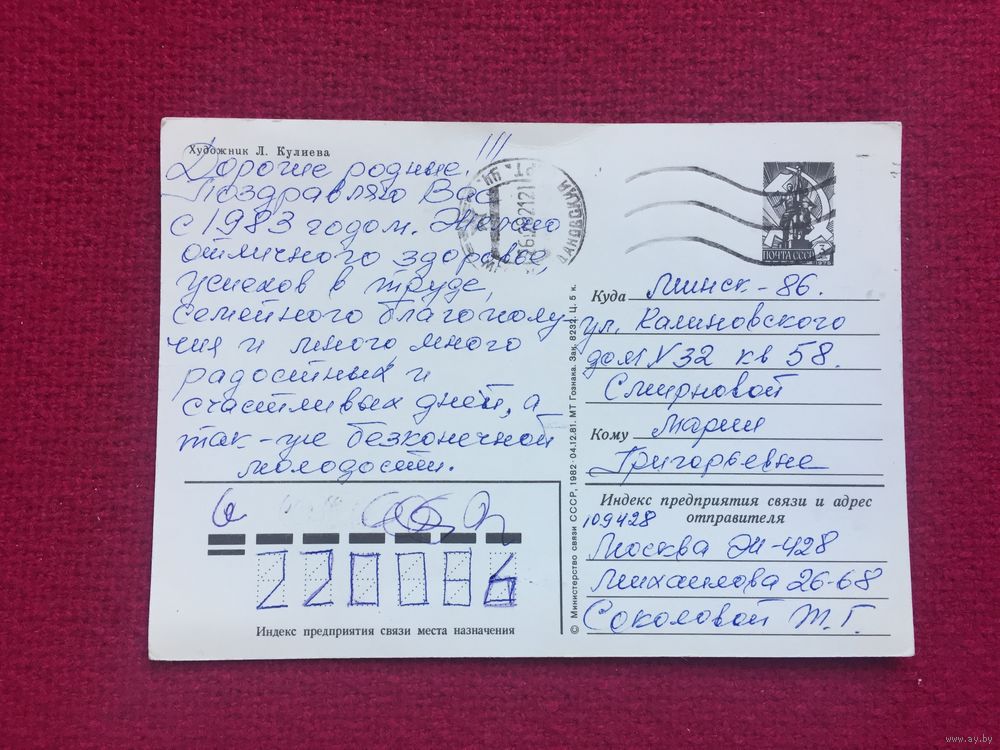 Художник Л. Кулиева
Дорогие родные!!!
Поздравляю Вас
с 1983 годом. Желаю
отличного здоровья,
успехов в труде,
семейного благополу-
чия и много много
радостных и
счастливых дней, а
так-же безконечной
молодости.
ПОЧТА СССР
Куда Минск-86.
ул. Калиновского
дом N 32 кв 58.
Смирновой
Кому Марии
Григорьевне
© Министерство связи СССР, 1982. 04.12.81. МТ Гознака. Зак. 8232. Ц. 5 к.
Индекс предприятия связи и адрес
отправителя
109428
Москва Ж-428
Михайлова 26-68
Соколовой Т. Г.
220086
Индекс предприятия связи места назначения
www.ay.by